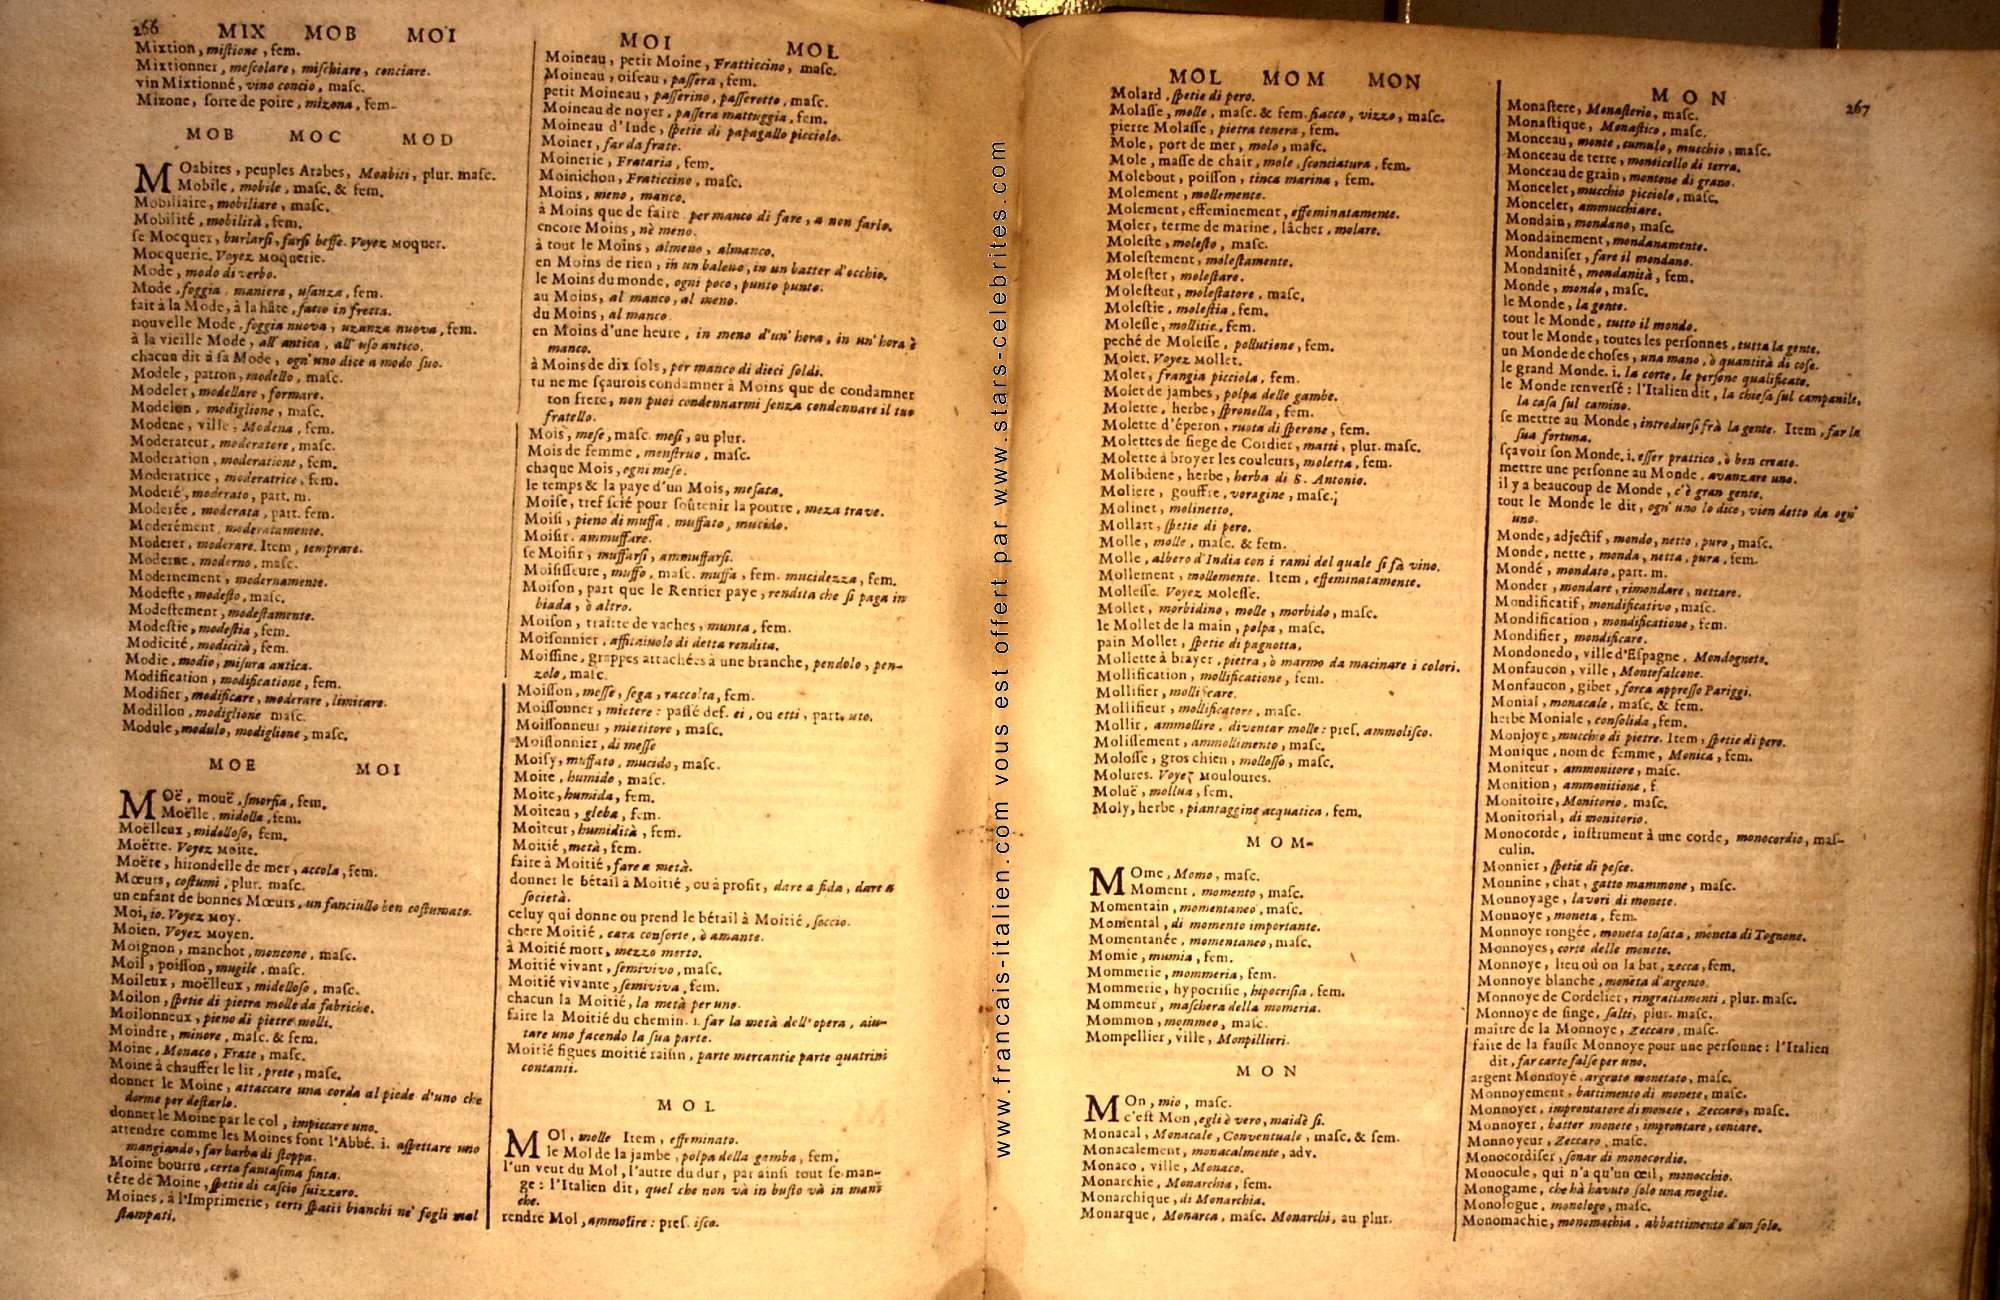 266 MIX MOB MOI
Mixtion, miſtione, fem.
Mixtionner, meſcolare, miſchiare, conciare.
vin Mixtionné, vino concio, maſc.
Mizone, ſorte de poire, mizona, fem.
MOB MOC MOD
MOabites, peuples Arabes, Moabiti, plur. maſc.
Mobile, mobile, maſc. & fem.
Mobiliaire, mobiliare, maſc.
Mobilité, mobilità, fem.
ſe Mocquer, burlarſi, farſi beffe. Voyez Moquer.
Mocquerie. Voyez Moquerie.
Mode, modo di verbo.
Mode, foggia, maniera, uſanza, fem.
fait à la Mode, à la hâte, fatto in fretta.
nouvelle Mode, foggia nuova, uzanza nuova, fem.
à la vieille Mode, all' antica, all' uſo antico.
chacun dit à ſa Mode, ogn'uno dice a modo ſuo.
Modele, patron, modello, maſc.
Modeler, modellare, formare.
Modelon, modiglione, maſc.
Modene, ville, Modena, fem.
Moderateur, moderatore, maſc.
Moderation, moderatione, fem.
Moderatrice, moderatrice, fem.
Moderé, moderato, part. m.
Moderée, moderata, part. fem.
Moderément, moderatamente.
Moderer, moderare. Item, temprare.
Moderne, moderno, maſc.
Modernement, modernamente.
Modeſte, modeſto, maſc.
Modeſtement, modeſtamente.
Modeſtie, modeſtia, fem.
Modicité, modicità, fem.
Modie, modio, miſura antica.
Modification, modificatione, fem.
Modifier, modificare, moderare, limitare.
Modillon, modiglione maſc.
Module, modulo, modiglione, maſc.
MOE MOI
MOë, mouë, ſmorfia, fem.
Moëlle, midolla, fem.
Moëlleux, midolloſo, fem.
Moëtte. Voyez Moite.
Moëte, hirondelle de mer, accola, fem.
Mœurs, coſtumi, plur. maſc.
un enfant de bonnes Mœurs, un fanciullo ben coſtumato.
Moi, io. Voyez Moy.
Moien. Voyez Moyen.
Moignon, manchot, moncone, maſc.
Moil, poiſſon, mugile, maſc.
Moileux, moëlleux, midelloſo, maſc.
Moilon, ſpetie di pietra molle da fabriche.
Moilonneux, pieno di pietre molli.
Moindre, minore, maſc. & fem.
Moine, Monaco, Frate, maſc.
Moine à chauffer le lit, prete, maſc.
donner le Moine, attaccare una corda al piede d'uno che
dorme per deſtarlo.
donner le Moine par le col, impiccare uno.
attendre comme les Moines font l'Abbé. i. aſpettare uno
mangiando, far barba di ſtoppa.
Moine bourru, certa fantaſima finta.
tête de Moine, ſpetie di caſcio ſuizzero.
Moines, à l'Imprimerie, certi ſpatii bianchi ne' fogli mal
ſtampati.
MOI MOL
Moineau, petit Moine, Fratticcino, maſc.
Moineau, oiſeau, paſſera, fem.
petit Moineau, paſſerino, paſſerotto, maſc.
Moineau de noyer, paſſera mattuggia, fem.
Moineau d'Inde, ſpetie di papagallo picciolo.
Moiner, far da frate.
Moinerie, Frataria, fem.
Moinichon, Fraticcino, maſc.
Moins, meno, manco.
à Moins que de faire, per manco di fare, a non farlo.
encore Moins, nè meno.
à tout le Moins, almeno, almanco.
en Moins de rien, in un baleno, in un batter d'occhio.
le Moins du monde, ogni poco, punto punto.
au Moins, al manco, al meno.
du Moins, al manco.
en Moins d'une heure, in meno d'un' hora, in un' hora è
manco.
à Moins de dix ſols, per manco di dieci ſoldi.
tu ne me ſçaurois condamner à Moins que de condamner
ton frere, non puoi condennarmi ſenza condennare il tuo
fratello.
Mois, meſe, maſc. meſi, au plur.
Mois de femme, menſtruo, maſc.
chaque Mois, ogni meſe.
le temps & la paye d'un Mois, meſata.
Moiſe, tref ſcié pour ſoûtenir la poutre, meza trave.
Moiſi, pieno di muffa, muffato, mucido.
Moiſir, ammuffare.
ſe Moiſir, muffarſi, ammuffarſi.
Moiſiſſeure, muffo, maſc. muffa, fem. mucidezza, fem.
Moiſon, part que le Rentier paye, rendita che ſi paga in
biada, ò altro.
Moiſon, traitte de vaches, munta, fem.
Moiſonnier, affittaivolo di detta rendita.
Moiſſine, grappes attachées à une branche, pendolo, pen-
zolo, maſc.
Moiſſon, meſſe, ſega, raccolta, fem.
Moiſſonner, mietere: paſſé def. ei, ou etti, part. uto.
Moiſſonneur, mietitore, maſc.
Moiſſonnier, di meſſe
Moiſy, muffato, mucido, maſc.
Moite, humido, maſc.
Moite, humida, fem.
Moiteau, gleba, fem.
Moiteur, humidità, fem.
Moitié, metà, fem.
faire à Moitié, fare a metà.
donner le bétail à Moitié, ou à profit, dare a ſida, dare a
ſocietà.
celuy qui donne ou prend le bétail à Moitié, ſoccio.
chere Moitié, cara conſorte, ò amante.
à Moitié mort, mezzo morto.
Moitié vivant, ſemivivo, maſc.
Moitié vivante, ſemiviva, fem.
chacun la Moitié, la metà per uno.
faire la Moitié du chemin. i. far la metà dell'opera, aiu-
tare uno facendo la ſua parte.
Moitié figues moitié raiſin, parte mercantie parte quatrini
contanti.
MOL
MOl, molle Item, effeminato.
le Mol de la jambe, polpa della gamba, fem.
l'un veut du Mol, l'autre du dur, par ainſi tout ſe man-
ge: l'Italien dit, quel che non và in buſto và in mani
che.
rendre Mol, ammolire: preſ. iſco.
www.francais-italien.com vous est offert par www.stars-celebrites.com
MOL MOM MON
Molard, ſpetie di pero.
Molaſſe, molle, maſc. & fem. fiacco, vizzo, maſc.
pierre Molaſſe, pietra tenera, fem.
Mole, port de mer, molo, maſc.
Mole, maſſe de chair, mole, ſconciatura, fem.
Molebout, poiſſon, tinca marina, fem.
Molement, mollemente.
Molement, effeminement, effeminatamente.
Moler, terme de marine, lâcher, molare.
Moleſte, moleſto, maſc.
Moleſtement, moleſtamente.
Moleſter, moleſtare.
Moleſteur, moleſtatore, maſc.
Moleſtie, moleſtia, fem.
Moleſſe, mollitie, fem.
peché de Moleſſe, pollutione, fem.
Molet. Voyez Mollet.
Molet, frangia picciola, fem.
Molet de jambes, polpa delle gambe.
Molette, herbe, ſpronella, fem.
Molette d'éperon, ruota di ſperone, fem.
Molettes de ſiege de Cordier, matti, plur. maſc.
Molette à broyer les couleurs, moletta, fem.
Molibdene, herbe, herba di S. Antonio.
Moliere, gouffre, voragine, maſc.
Molinet, molinetto.
Mollart, ſpetie di pero.
Molle, molle, maſc. & fem.
Molle, albero d'India con i rami del quale ſi fà vino.
Mollement, mollemente. Item, effeminatamente.
Molleſſe. Voyez Moleſſe.
Mollet, morbidino, molle, morbido, maſc.
le Mollet de la main, polpa, maſc.
pain Mollet, ſpetie di pagnotta.
Mollette à brayer, pietra, ò marmo da macinare i colori.
Mollification, mollificatione, fem.
Mollifier, mollificare.
Mollifieur, mollificatore, maſc.
Mollir, ammollire, diventar molle: preſ. ammoliſco.
Molliſſement, ammollimento, maſc.
Moloſſe, gros chien, moloſſo, maſc.
Molures. Voyez Mouloures.
Moluë, mollua, fem.
Moly, herbe, piantaggine acquatica, fem.
MOM
MOme, Momo, maſc.
Moment, momento, maſc.
Momentain, momentaneo, maſc.
Momental, di momento importante.
Momentanée, momentaneo, maſc.
Momie, mumia, fem.
Mommerie, mommeria, fem.
Mommerie, hypocriſie, hipocriſia, fem.
Mommeur, maſchera della momeria.
Mommon, mommeo, maſc.
Mompellier, ville, Monpillieri.
MON
MOn, mio, maſc.
c'eſt Mon, egli è vero, maidè ſi.
Monacal, Monacale, Conventuale, maſc. & fem.
Monacalement, monacalmente, adv.
Monaco, ville, Monaco.
Monarchie, Monarchia, fem.
Monarchique, di Monarchia.
Monarque, Monarca, maſc. Monarchi, au plur.
MON 267
Monaſtere, Monaſterio, maſc.
Monaſtique, Monaſtico, maſc.
Monceau, monte, cumulo, mucchio, maſc.
Monceau de terre, monticello di terra.
Monceau de grain, montone di grano.
Moncelet, mucchio picciolo, maſc.
Monceler, ammucchiare.
Mondain, mondano, maſc.
Mondainement, mondanamente.
Mondaniſer, fare il mondano.
Mondanité, mondanità, fem.
Monde, mondo, maſc.
le Monde, la gente.
tout le Monde, tutto il mondo.
tout le Monde, toutes les perſonnes, tutta la gente.
un Monde de choſes, una mano, ò quantità di coſe.
le grand Monde. i. la corte, le perſone qualificate.
le Monde renverſé: l'Italien dit, la chieſa ſul campanile,
la caſa ſul camino.
ſe mettre au Monde, introdurſi frà la gente. Item, far la
ſua fortuna.
ſçavoir ſon Monde. i. eſſer prattico, ò ben creato.
mettre une perſonne au Monde, avanzare uno.
il y a beaucoup de Monde, c'è gran gente.
tout le Monde le dit, ogn' uno lo dice, vien detto da ogn'
uno.
Monde, adjectif, mondo, netto, puro, maſc.
Monde, nette, monda, netta, pura, fem.
Mondé, mondato, part. m.
Monder, mondare, rimondare, nettare.
Mondificatif, mondificativo, maſc.
Mondification, mondificatione, fem.
Mondifier, mondificare.
Mondonedo, ville d'Eſpagne, Mondogneto.
Monfaucon, ville, Montefalcone.
Monfaucon, gibet, forca appreſſo Pariggi.
Monial, monacale, maſc. & fem.
herbe Moniale, conſolida, fem.
Monjoye, mucchio di pietre. Item, ſpetie di pero.
Monique, nom de femme, Monica, fem.
Moniteur, ammonitore, maſc.
Monition, ammonitione, f.
Monitoire, Monitorio, maſc.
Monitorial, di monitorio.
Monocorde, inſtrument à une corde, monocordio, maſ-
culin.
Monnier, ſpetie di peſce.
Monnine, chat, gatto mammone, maſc.
Monnoyage, lavori di monete.
Monnoye, moneta, fem.
Monnoye rongée, moneta toſata, moneta di Tognone.
Monnoyes, corte delle monete.
Monnoye, lieu où on la bat, zecca, fem.
Monnoye blanche, moneta d'argento.
Monnoye de Cordelier, ringratiamenti, plur. maſc.
Monnoye de ſinge, ſalti, plur. maſc.
maître de la Monnoye, Zeccaro, maſc.
faire de la fauſſe Monnoye pour une perſonne: l'Italien
dit, far carte falſe per uno.
argent Monnoyé, argento monetato, maſc.
Monnoyement, battimento di monete, maſc.
Monnoyer, improntatore di monete, Zeccaro, maſc.
Monnoyer, batter monete, improntare, coniare.
Monnoyeur, Zeccaro, maſc.
Monocordiſer, ſonar di monocordio.
Monocule, qui n'a qu'un œil, monocchio.
Monogame, che hà havuto ſolo una moglie.
Monologue, monologo, maſc.
Monomachie, monomachia, abbattimento d'un ſolo.